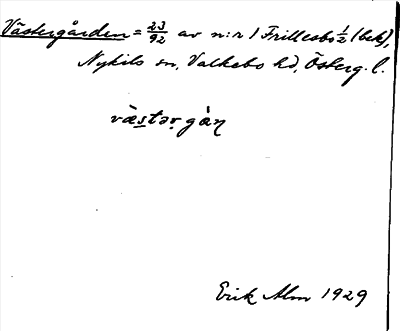 Västergården = 23/92 av n:r 1 Frillesbo 1/2 (bek),
Nykils sn, Valkebo hd, Österg. l.
væ̀stər gàɳ
Erik Alm 1929